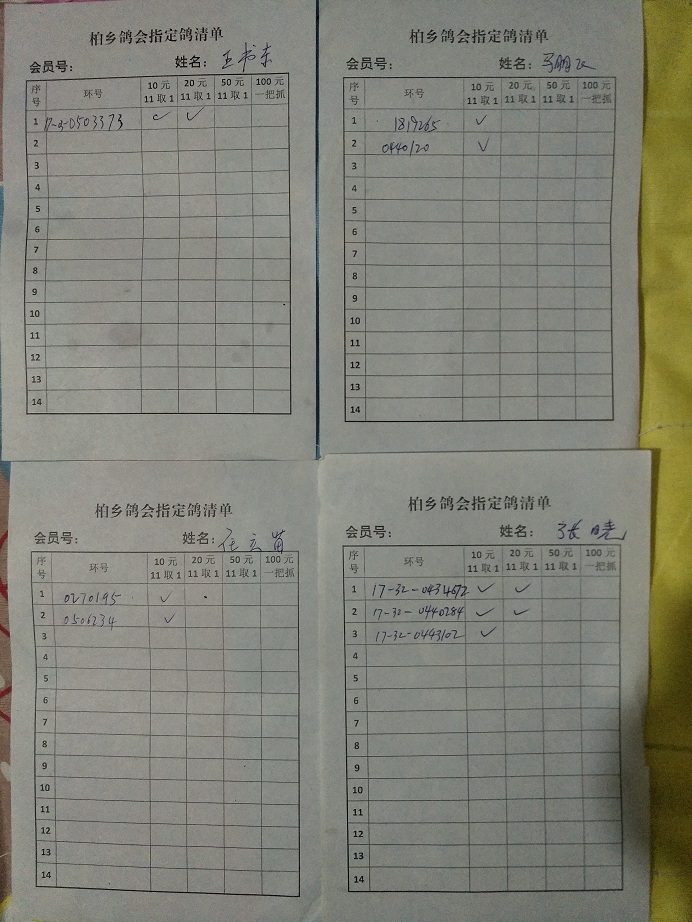 柏乡鸽会指定鸽清单
会员号： 姓名：王书东
序号 环号 10元 11取1 20元 11取1 50元 11取1 100元 一把抓
1 0503373 ✓ ✓
2
3
4
5
6
7
8
9
10
11
12
13
14
柏乡鸽会指定鸽清单
会员号： 姓名：
序号 环号 10元 11取1 20元 11取1 50元 11取1 100元 一把抓
1 1819265 ✓
2 0440120 ✓
3
4
5
6
7
8
9
10
11
12
13
14
柏乡鸽会指定鸽清单
会员号： 姓名：
序号 环号 10元 11取1 20元 11取1 50元 11取1 100元 一把抓
1 0270195 ✓
2 0506234 ✓
3
4
5
6
7
8
9
10
11
12
13
14
柏乡鸽会指定鸽清单
会员号： 姓名：张晓
序号 环号 10元 11取1 20元 11取1 50元 11取1 100元 一把抓
1 17-32-0434672 ✓ ✓
2 17-32-0440284 ✓ ✓
3 17-32-0443102 ✓
4
5
6
7
8
9
10
11
12
13
14